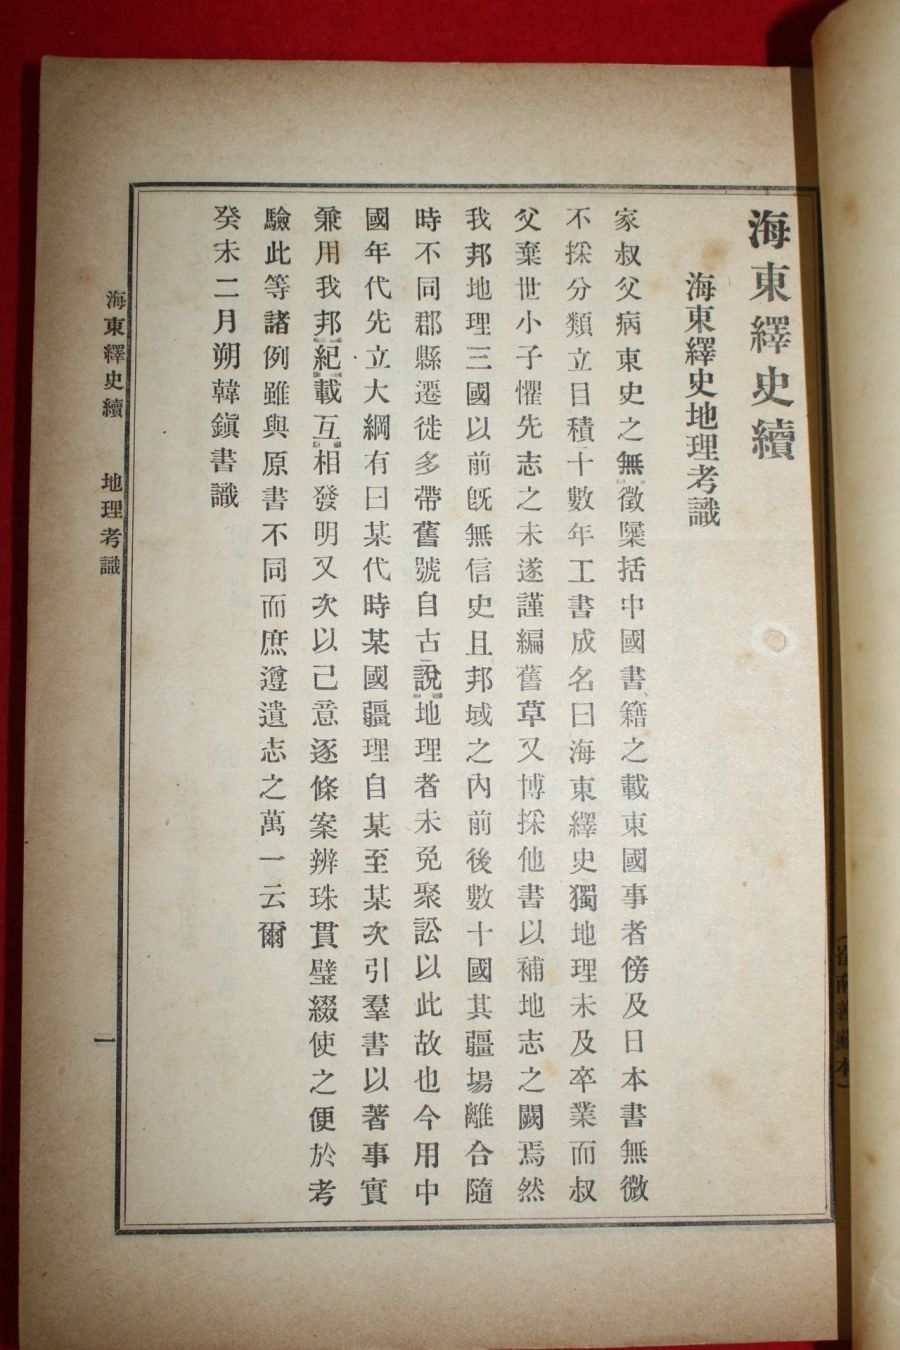 海東繹史續
海東繹史地理考識
家叔父病東史之無徵檃括中國書籍之載東國事者傍及日本書無微
不採分類立目積十數年工書成名曰海東繹史獨地理未及卒業而叔
父棄世小子懼先志之未遂謹編舊草又博採他書以補地志之闕焉然
我邦地理三國以前旣無信史且邦域之內前後數十國其疆場離合隨
時不同郡縣遷徙多帶舊號自古說地理者未免聚訟以此故也今用中
國年代先立大綱有曰某代時某國疆理自某至某次引羣書以著事實
兼用我邦紀載互相發明又次以己意逐條案辨珠貫璧綴使之便於考
驗此等諸例雖與原書不同而庶遵遺志之萬一云爾
癸未二月朔韓鎭書識
海東繹史續 地理考識
一